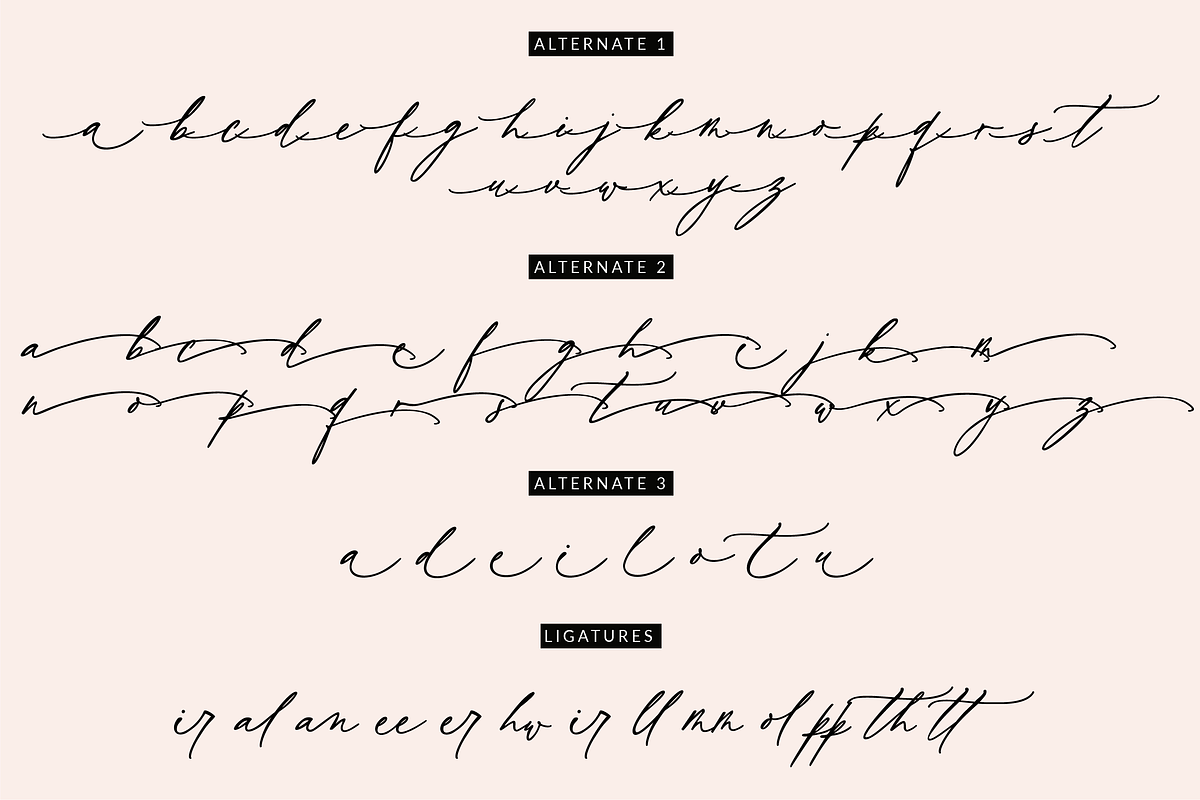 ALTERNATE 1
a b c d e f g h i j k m n o p q r s t
u v w x y z
ALTERNATE 2
a b c d e f g h c j k m
n o p q r s t u v w x y z
ALTERNATE 3
a d e i l o t u
LIGATURES
ir al an ee er hw ir ll mm ol pp th tt